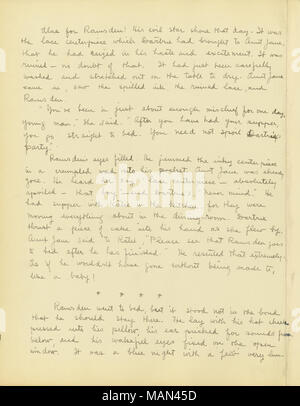 Alas for Ramsden! His evil star shone that day. It was
the lace centerpiece which Beatrice had brought to Aunt Jane,
that he had seized in his haste and excitement. It was
ruined — no doubt of that. It had just been carefully
washed and stretched out on the table to dry. Aunt Jane
came in, saw the spilled ink the ruined lace, and
Ramsden.
"You've been in just about enough mischief for one day,
young man," she said. "After you have had your supper,
you go straight to bed. You need not spoil Beatrice's
party."
Ramsden's eyes filled. He jammed the inky centerpiece
in a crumpled wad into his pocket. Aunt Jane was
gone. He heard is absolutely
spoiled
had supper with Katie in the kitchen for they were
moving everything about in the dining-room. Beatrice
thrust a piece of cake into his hand as she flew by.
Aunt Jane said to Katie, "Please see that Ramsden goes
to bed after he has finished." He resented that extremely.
As if he wouldn't have gone without being made to,
like a baby!
* * * *
Ramsden went to bed, but it stood not in the bond
that he should stay there. He lay with his hot cheek
pressed into his pillow, his ear pricked for sounds from
below and his wakeful eyes fixed on the open
window. It was a blue night with a few very
alamy
Image ID: MAN45D
www.alamy.com